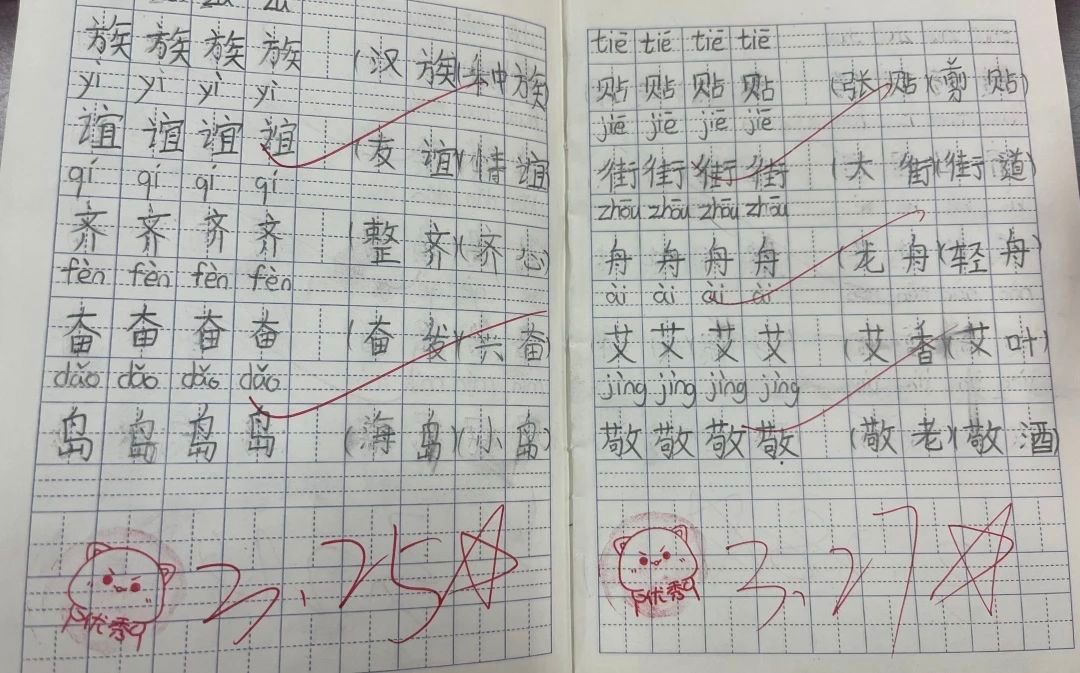 zú
族 族 族 族 (汉 族)(种 族)
yì yì yì yì
谊 谊 谊 谊 (友 谊)(情 谊)
qí qí qí qí
齐 齐 齐 齐 (整 齐)(齐 心)
fèn fèn fèn fèn
奋 奋 奋 奋 (奋 发)(兴 奋)
dǎo dǎo dǎo dǎo
岛 岛 岛 岛 (海 岛)(小 岛)
优秀
3.25
tiē tiē tiē tiē
贴 贴 贴 贴 (张 贴)(剪 贴)
jiē jiē jiē jiē
街 街 街 街 (大 街)(街 道)
zhōu zhōu zhōu zhōu
舟 舟 舟 舟 (龙 舟)(轻 舟)
ài ài ài ài
艾 艾 艾 艾 (艾 香)(艾 叶)
jìng jìng jìng jìng
敬 敬 敬 敬 (敬 老)(敬 酒)
优秀
3.27